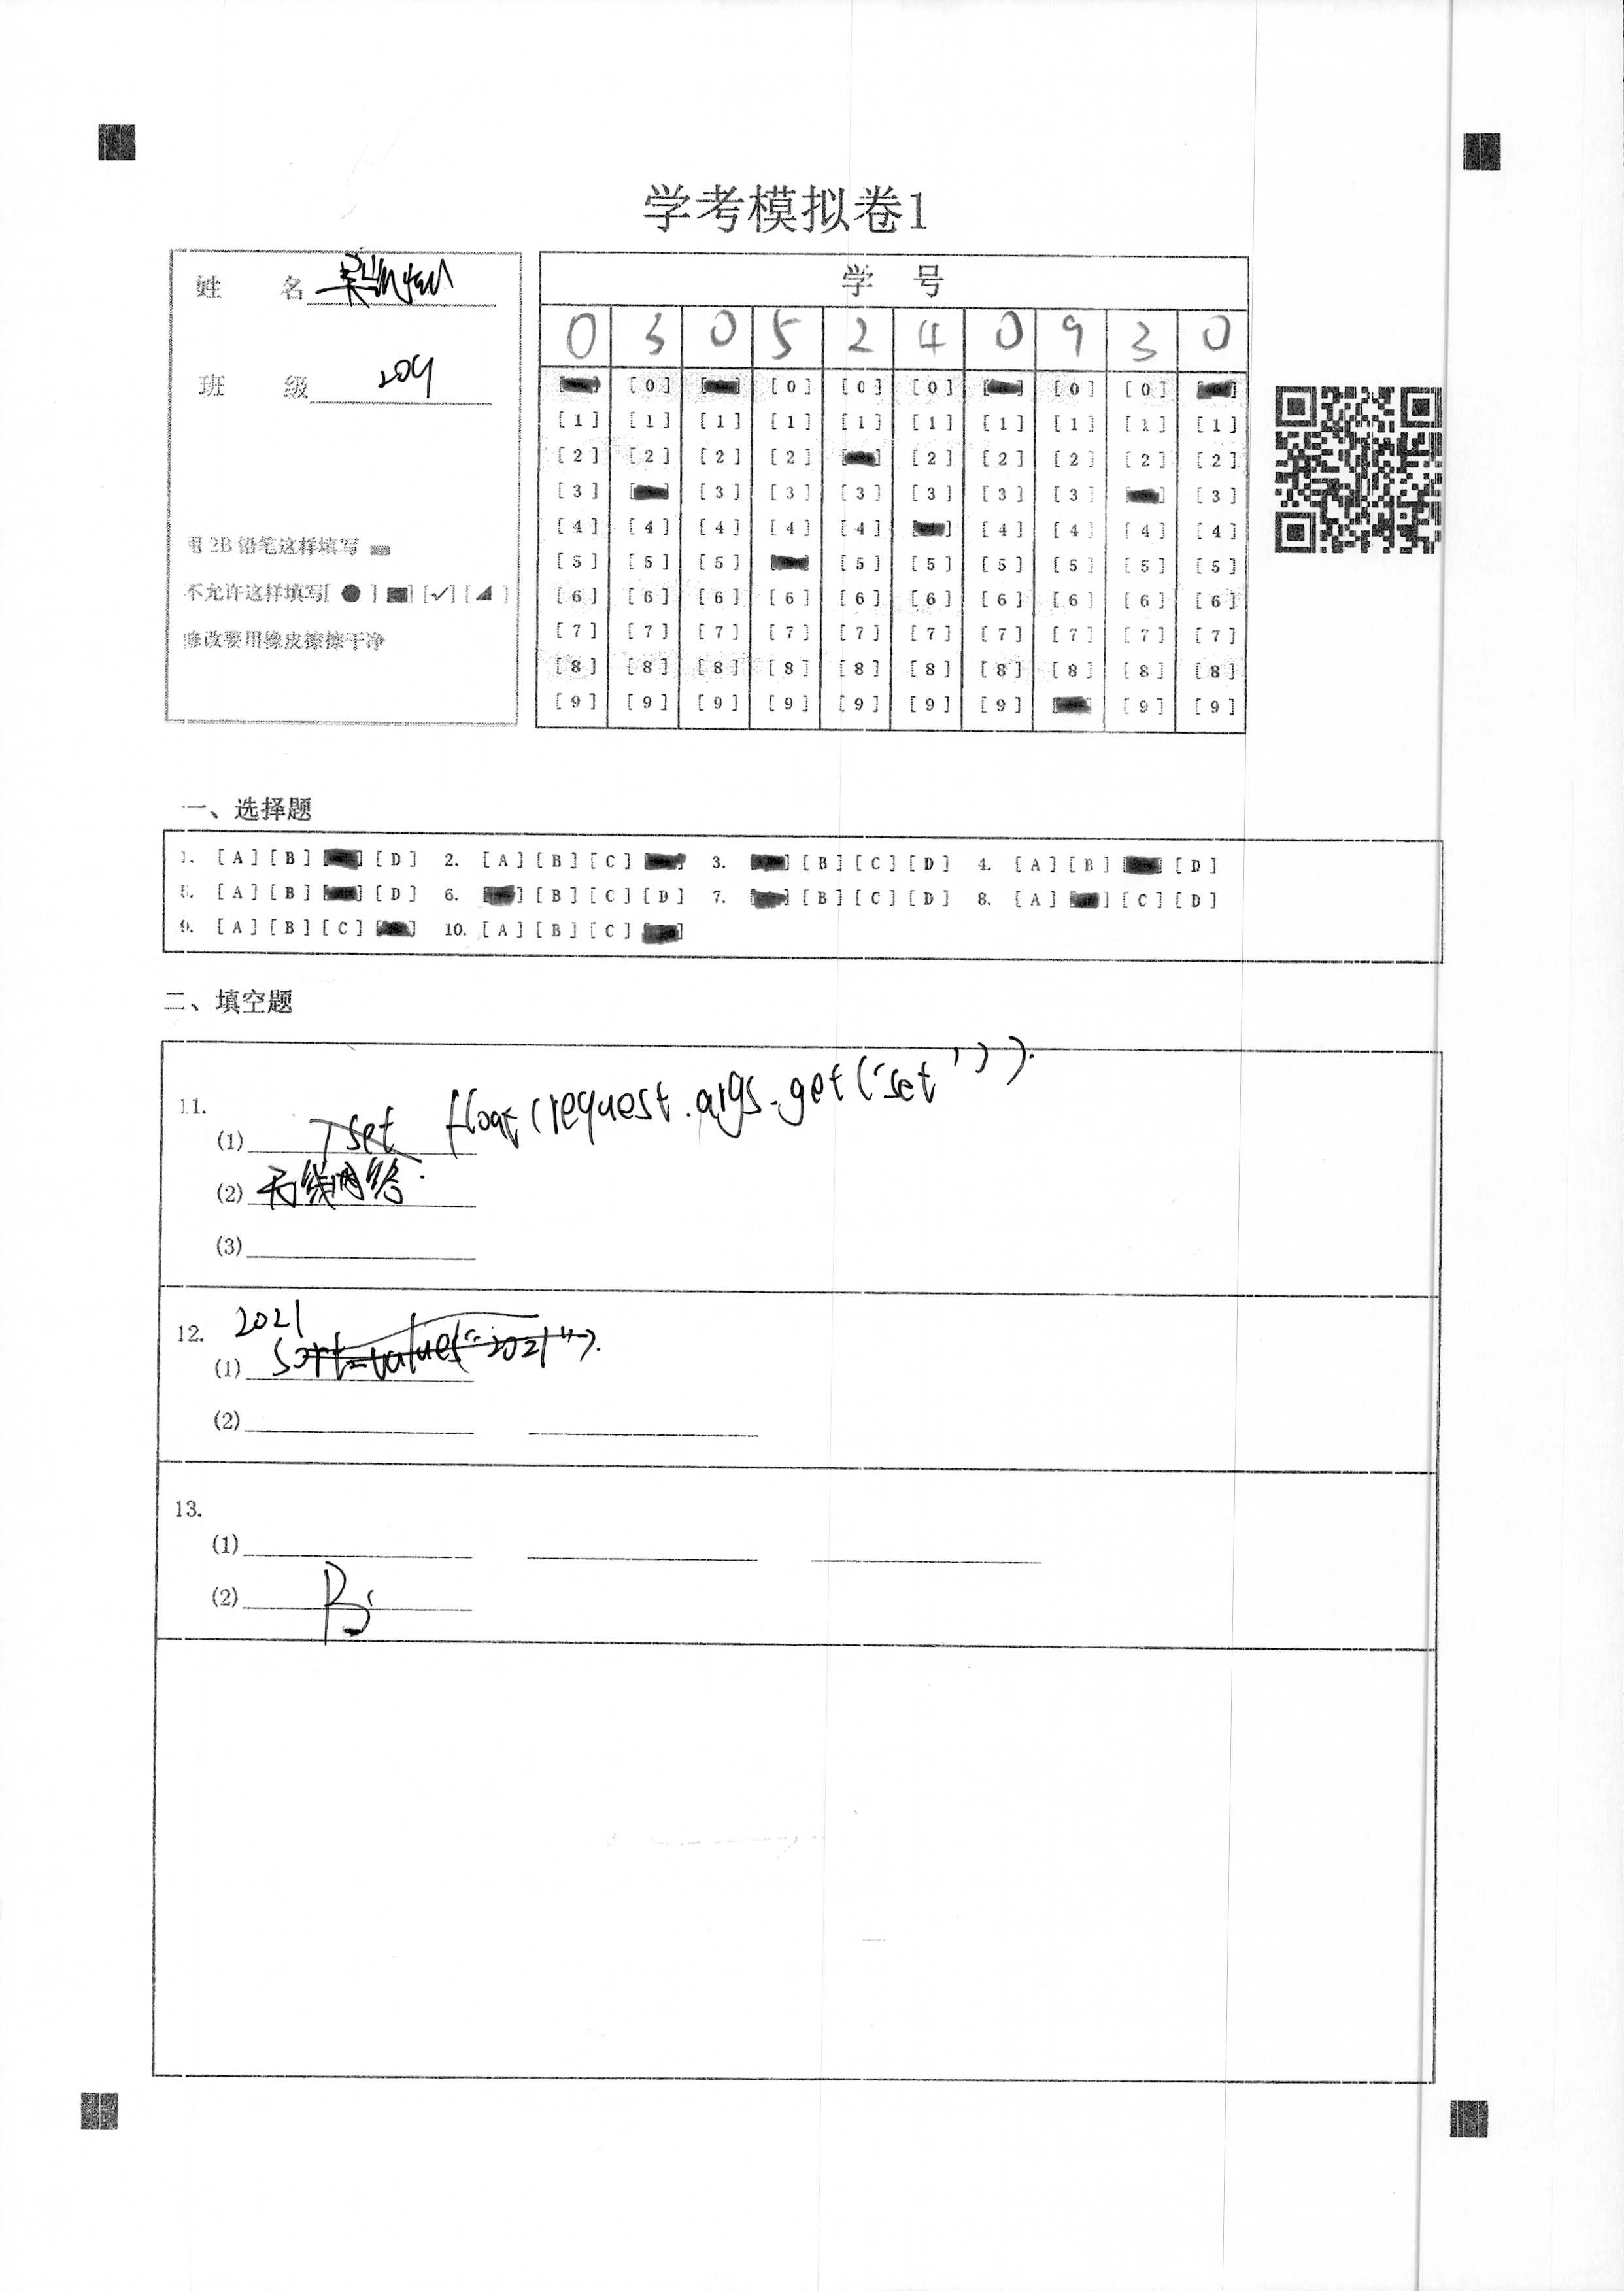 学考模拟卷1
姓 名
班 级 204
用 2B 铅笔这样填写
不允许这样填写[ ● ] [■] [✓] [◢ ]
修改要用橡皮擦擦干净
学 号
0 3 0 5 2 4 0 9 3 0
[0] [0] [0] [0] [0] [0]
[1] [1] [1] [1] [1] [1] [1] [1] [1] [1]
[2] [2] [2] [2] [2] [2] [2] [2] [2]
[3] [3] [3] [3] [3] [3] [3] [3]
[4] [4] [4] [4] [4] [4] [4] [4] [4]
[5] [5] [5] [5] [5] [5] [5] [5] [5]
[6] [6] [6] [6] [6] [6] [6] [6] [6] [6]
[7] [7] [7] [7] [7] [7] [7] [7] [7] [7]
[8] [8] [8] [8] [8] [8] [8] [8] [8] [8]
[9] [9] [9] [9] [9] [9] [9] [9] [9]
一、选择题
1. [A] [B] [D] 2. [A] [B] [C] 3. [B] [C] [D] 4. [A] [B] [D]
5. [A] [B] [D] 6. [B] [C] [D] 7. [B] [C] [D] 8. [A] [C] [D]
9. [A] [B] [C] 10. [A] [B] [C]
二、填空题
11.
(1) float(request.args.get('set'))
(2) 无线网络
(3)
12. 2021
(1) sort_values("2021")
(2)
13.
(1)
(2) B